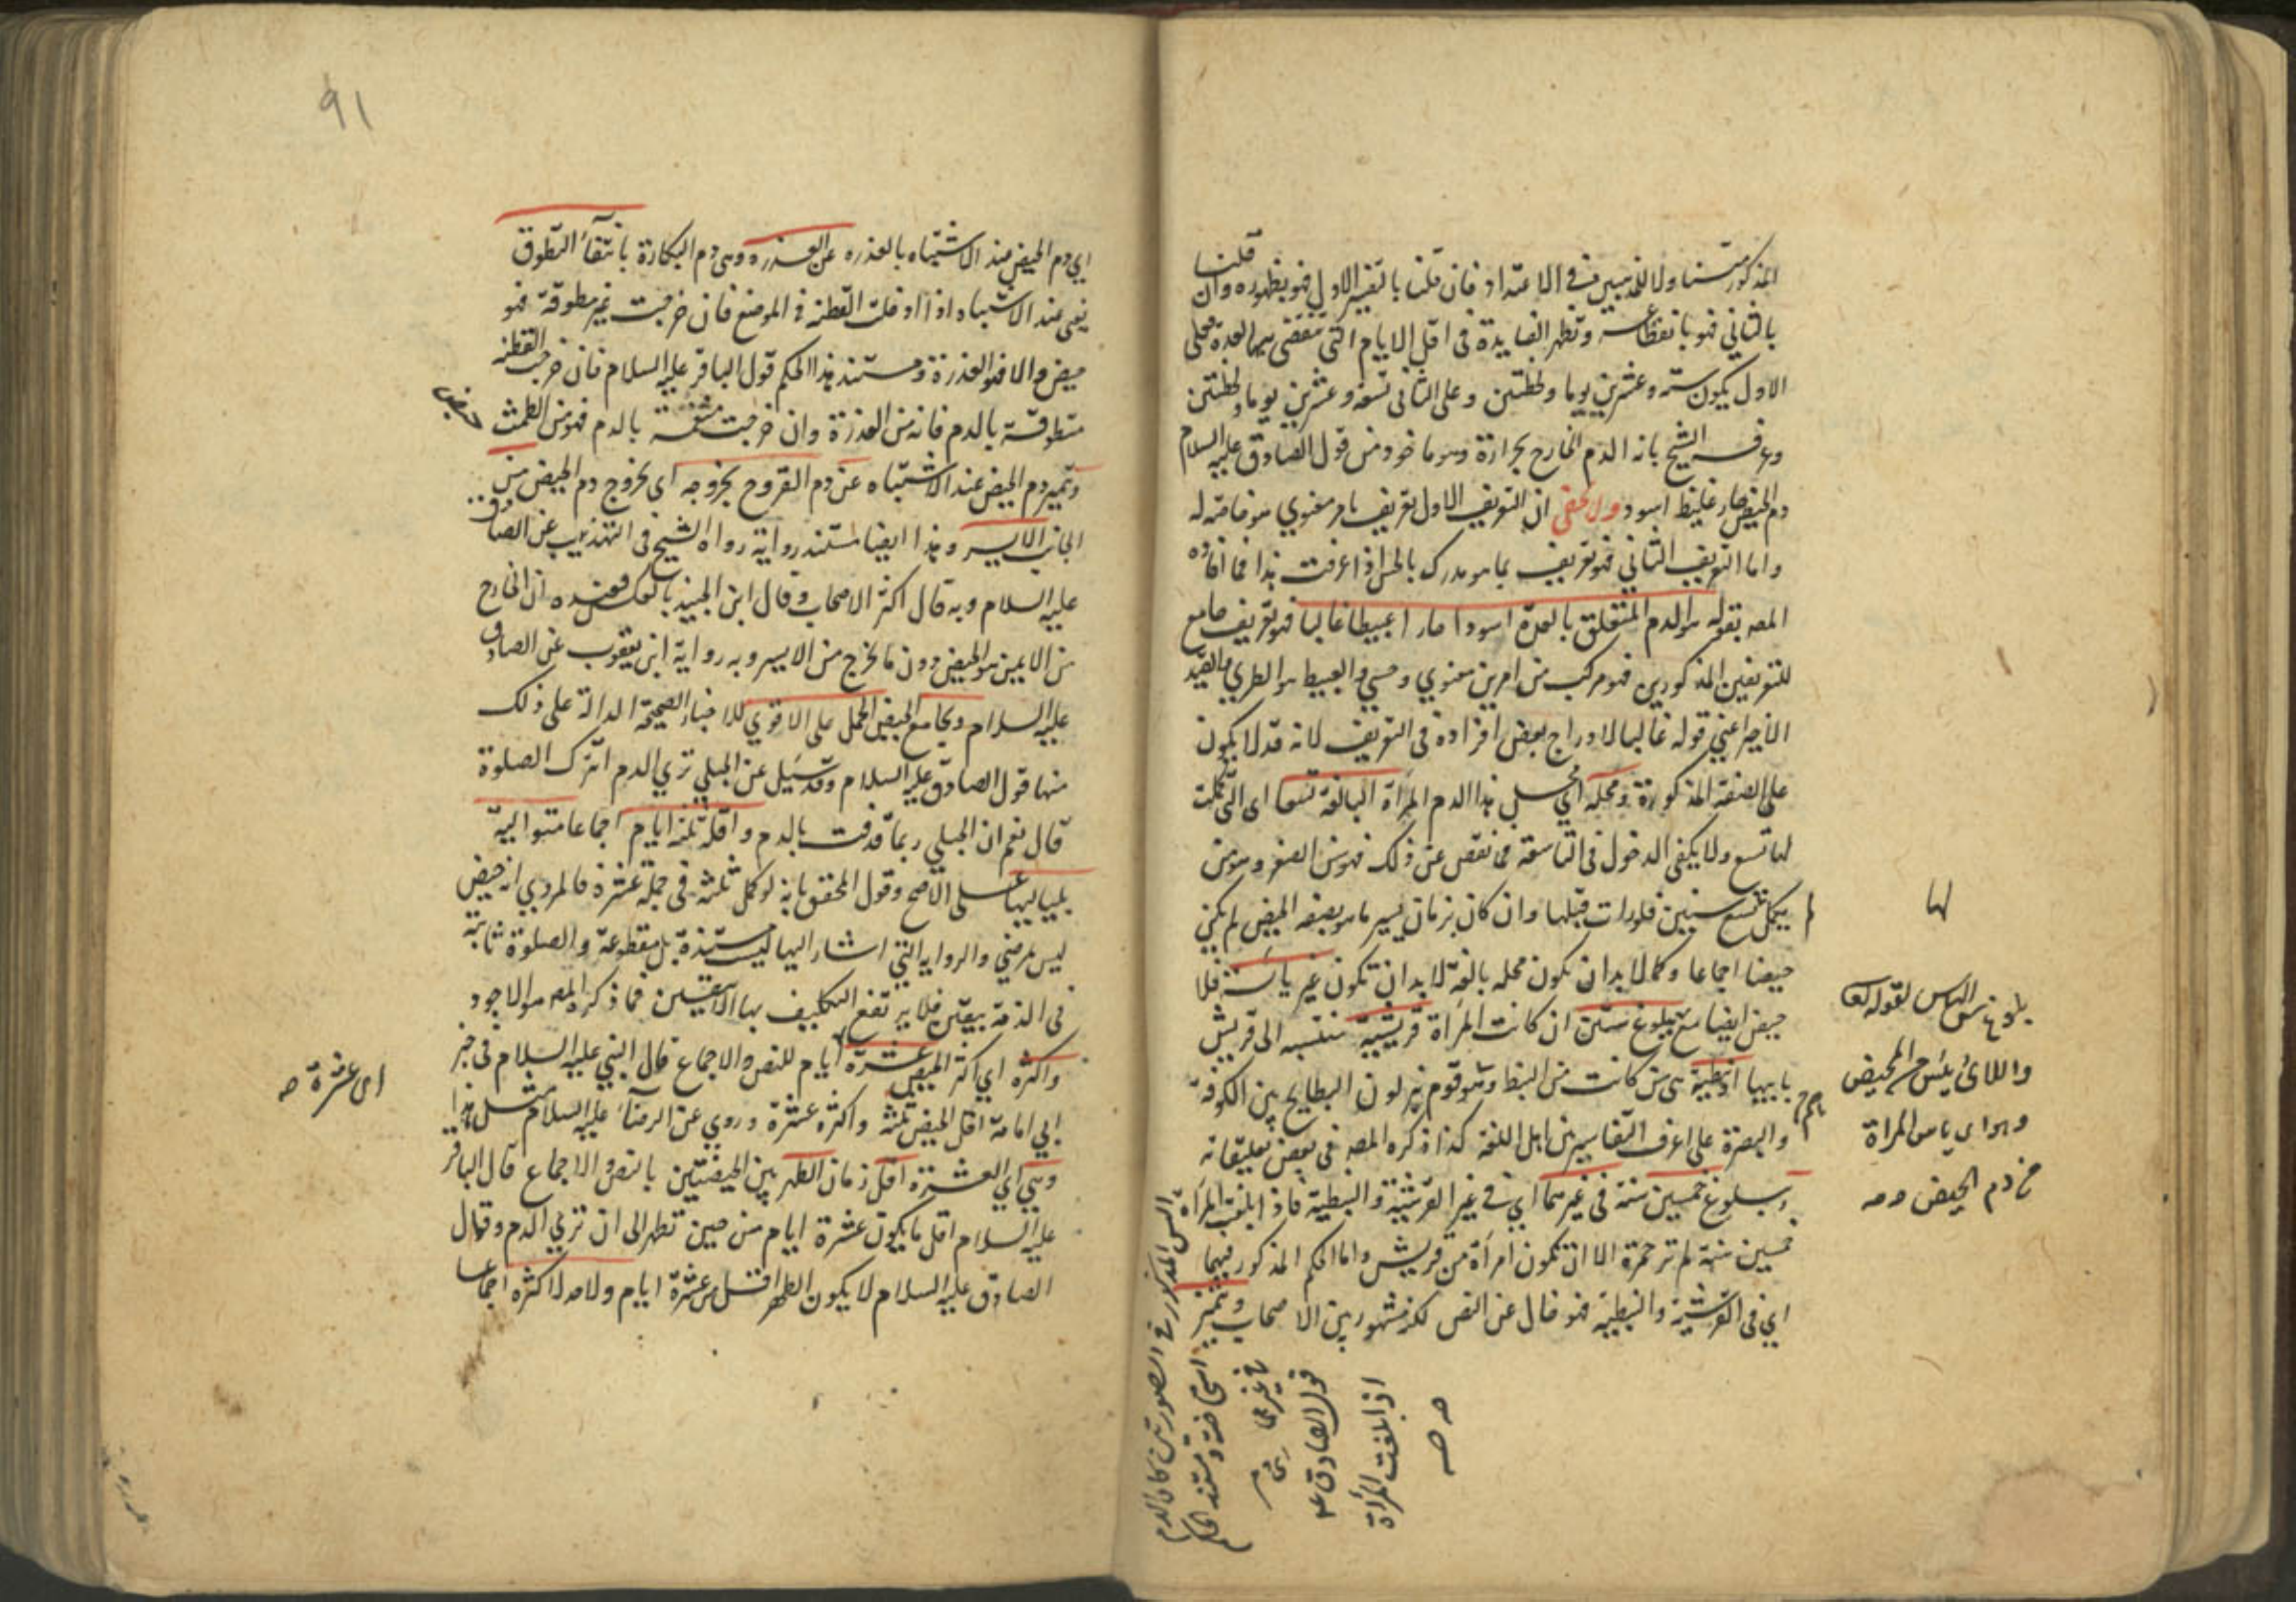 المذكورتين ولا للمذهبين في الاعتداد فان قلنا بالتفسير الاول فهو بظهوره وان قلنا
بالثاني فهو بانقطاعه وتظهر الفايدة في اقل الايام التي تنقضي بها العدة فعلى
الاول يكون ستة وعشرين يوما ولحظتين وعلى الثاني تسعة وعشرين يوما ولحظتين
وعرفه الشيخ بانه الدم الخارج بحرارة وهو ماخوذ من قول الصادق عليه السلام
دم الحيض حار غليظ اسود ولا يخفى ان التعريف الاول تعريف بامر معنوي هو خاصة له
واما التعريف الثاني فهو تعريف بما هو مدرك بالحس اذا عرفت هذا فما افاده
المصه بقوله هو الدم المتعلق بالعدة اسودا حارا عبيطا غالبا فهو تعريف جامع
للتعريفين المذكورين فهو مركب من امرين معنوي وحسي والعبيط هو الطري والقيد
الاخير اعني قوله غالبا لادراج بعض افراده في التعريف لانه قد لا يكون
على الصفة المذكورة ومحله اي محل هذا الدم المرأة البالغة تسعا اي التي كملت
لها تسع ولا يكفي الدخول في التاسعة فما نقص عن ذلك فهو سن الصغر ومتى
لم يكمل تسع سنين فلو رات قبلها وان كان بزمان يسير ما هو بصفة الحيض لم يكن
حيضا اجماعا وكما لا بد ان يكون محله بالغة لا بد ان تكون غير يائسة فلا
حيض ايضا مع بلوغ ستين ان كانت المرأة قريشية منتسبه الى قريش
بابيها او نبطية هي من كانت من النبط وهو قوم ينزلون البطايح بين الكوفة
والبصرة على اعرف التفاسير بين اهل اللغة كذا ذكره المصه في بعض تعليقاته
وببلوغ خمسين سنة في غيرهما اي في غير القرشية والنبطية فاذا بلغت المرأة
خمسين سنة لم تر حمرة الا ان تكون امرأة من قريش واما الحكم المذكور فيهما
اي في القرشية والنبطية فهو خال عن النص لكنه مشهور بين الاصحاب ويتميز
لها
بلوغ سن الياس لقوله تعا
واللائى يئسن من المحيض
وهو اى ياس المرأة
من دم الحيض صه
السن المذكور في الصورتين كان الدم
استحاضة ومستند الحكم
في غيرهما
قول الصادق ع
اذا بلغت المرأة
صه
91
اي دم الحيض عند الاشتباه بالعذره عن العذره وهي دم البكارة بانتفاء التطوق
يعني عند الاشتباه اذا ادخلت القطنة في الموضع فان خرجت غير مطوقة فهو
حيض والا فهو العذرة ومستند هذا الحكم قول الباقر عليه السلام فان خرجت القطنه
متطوقة بالدم فانه من العذرة وان خرجت منتقعة بالدم فهو من الطمث
ويتميز دم الحيض عند الاشتباه عن دم القروح بخروجه اي بخروج دم الحيض من
الجانب الايسر وهذا ايضا لمستند رواية رواه الشيخ في التهذيب عن الصادق
عليه السلام وبه قال اكثر الاصحاب وقال ابن الجنيد بالعكس فعنده ان الخارج
من الايمن هو الحيض دون ما يخرج من الايسر وبه رواية ابن يعقوب عن الصادق
عليه السلام ويجامع الحيض الحمل على الاقوي للاخبار الصحيحة الدالة على ذلك
منها قول الصادق عليه السلام وقد سئيل عن الحبلي تري الدم اتترك الصلوة
قال نعم ان الحبلي ربما قذفت بالدم واقله ثلثة ايام اجماعا متوالية
بلياليها على الاصح وقول المحقق بانه لو كمل ثلثة في جملة عشرة فالمروي انه حيض
ليس مرضي والرواية التي اشار اليها ليست مستندة بل مقطوعة والصلوة ثابتة
في الذمة بيقين فلا يرتفع التكليف بها الا بيقين فما ذكره المصه هو الاجود
واكثره اي اكثر الحيض عشرة ايام للنص والاجماع قال النبي عليه السلام في خبر
ابي امامة اقل الحيض ثلثة واكثره عشرة وروي عن الرضا عليه السلام مثل هذا
وهي اي العشرة اقل زمان الطهر بين الحيضتين بالنص والاجماع قال الباقر
عليه السلام اقل ما يكون عشرة ايام من حين تطهر الى ان تري الدم وقال
الصادق عليه السلام لا يكون الطهر اقل من عشرة ايام ولا حد لاكثره اجماعا
اى عشرة صه